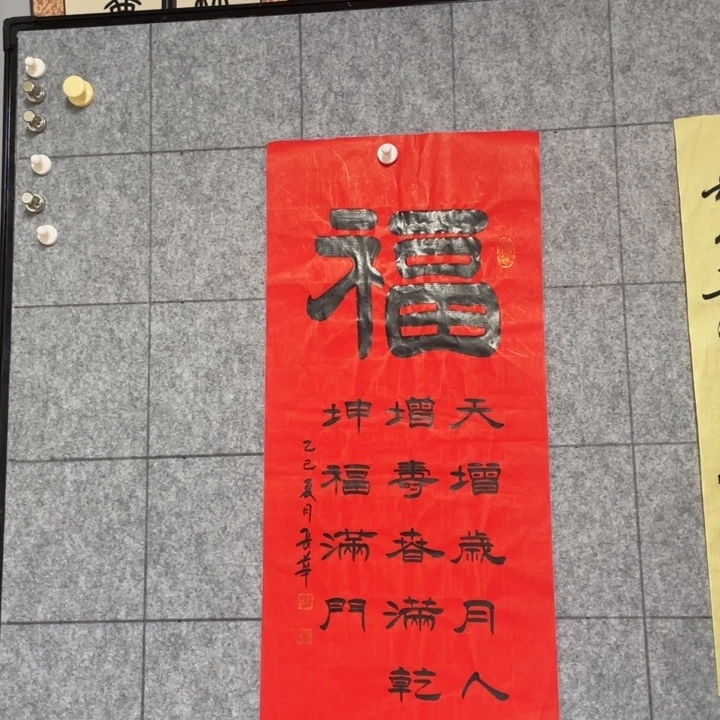 福
天增歲月人
增壽春滿乾
坤福滿門
乙巳夏月
華